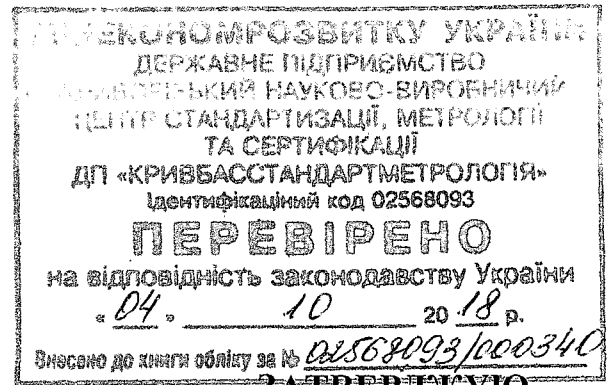 МІНЕКОНОМРОЗВИТКУ УКРАЇНИ
ДЕРЖАВНЕ ПІДПРИЄМСТВО
КРИВОРІЗЬКИЙ НАУКОВО-ВИРОБНИЧИЙ
ЦЕНТР СТАНДАРТИЗАЦІЇ, МЕТРОЛОГІЇ
ТА СЕРТИФІКАЦІЇ
ДП «КРИВБАССТАНДАРТМЕТРОЛОГІЯ»
Ідентифікаційний код 02568093
ПЕРЕВІРЕНО
на відповідність законодавству України
« 04 » 10 20 18 р.
Внесено до книги обліку за № 02568093/000340
ЗАТВЕРДЖУЮ